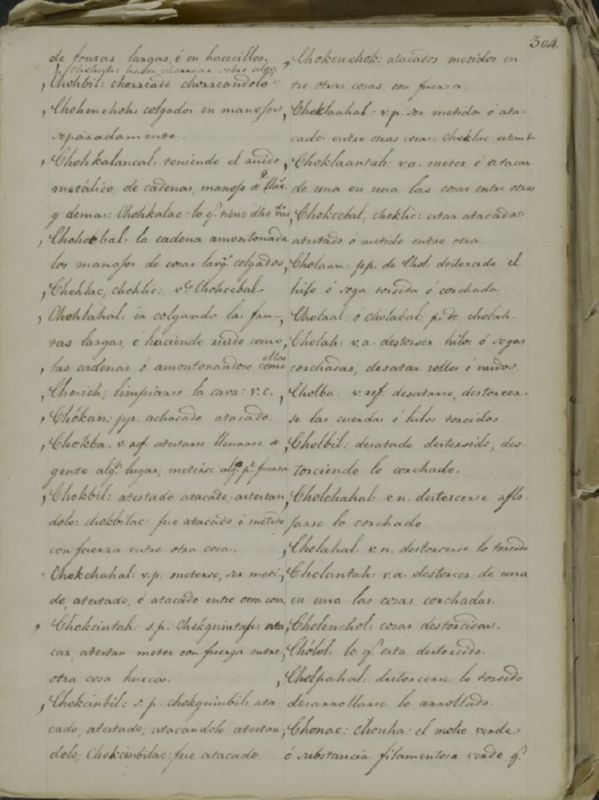 304.
de frutas largas, é en hacecillos.
Chohbil: chorreado chorreandolo
Chohenchoh: colgados en manojos,
separadamente.
Chohkalancal: teniendo el ruido
metálico, de cadenas, manojo de
y demas: Chohkalac: lo q.e tiene dho
Chohocbal: la cadena amontonada
los manojos de cosas larg.s colgados,
Chohlac, chohlic: v.e Chohocbal
Chohlahal: ir colgando las fru-
tas largas, é haciendo ruido como
las cadenas ó amontonandose como ellas
Chorich: limpiarse la cara: v.c.
Chókan: pp. achocado atacado.
Chokba. v. ref. atestarse llenarse de
gente alg.n lugar, meterse alg.o p.r fuerza
Chokbil: atestado atacado, atestan
dolo: chokbilac: fue atacado ó metido
con fuerza entre otra cosa.
Chokchahal: v.p. meterse, ser meti-
do, atestado, é atacado entre otra cosa
Chokcintah: s.p. Chokquintah: ata
car, atestar meter con fuerza entre
otra cosa hueca.
Chokcinbil: s.p. chokquinbil: ata
cado, atestado, atacandolo atestan,
dolo; Chokcinbilac: fue atacado.
Chokenchok: atacados metidos en
tre otras cosas con fuerza.
Choklaahal: v.p. ser metidos ó ata-
cados entre otras cosas: Choklac
Choklaantah: v.a. meter é atacar
de una en una las cosas entre otras
Chokocbal, choklic: estar atacada
atestado ó metido entre otra
Cholaan: pp. de Chol: destorcido el
hilo ó soga torcida ó corchada
Cholaal: ó cholabal: p. de cholah.
Cholah: v.a. destorcer hilos ó sogas
corchadas, desatar rollos ó nudos.
Cholba: v. ref. desatarse, destorcer-
se las cuerdas é hilos torcidos
Cholbil: desatado destorcido, des-
torciendo lo corchado.
Cholchahal: v.n. destorcerse aflo-
jarse lo corchado.
Cholahal: v.n. destorcerse lo torcido.
Cholantah: v.a. destorcer de una
en una las cosas corchadas.
Cholenchol: cosas destorcidas.
Chólol: lo q.e esta destorcido.
Cholpahal: destorcerse lo torcido
desarrollarse lo arrollado.
Chonac: chonha: el moho verde
ó substancia filamentosa verde q.e